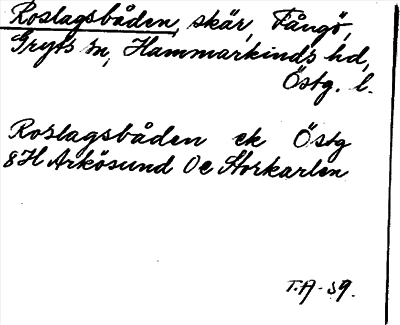 Roslagsbåden, skär, Fångö,
Gryts sn, Hammarkinds hd,
Östg. l.
Roslagsbåden ek Östg
8H Arkösund 0e Storkarlen
T.A-59.